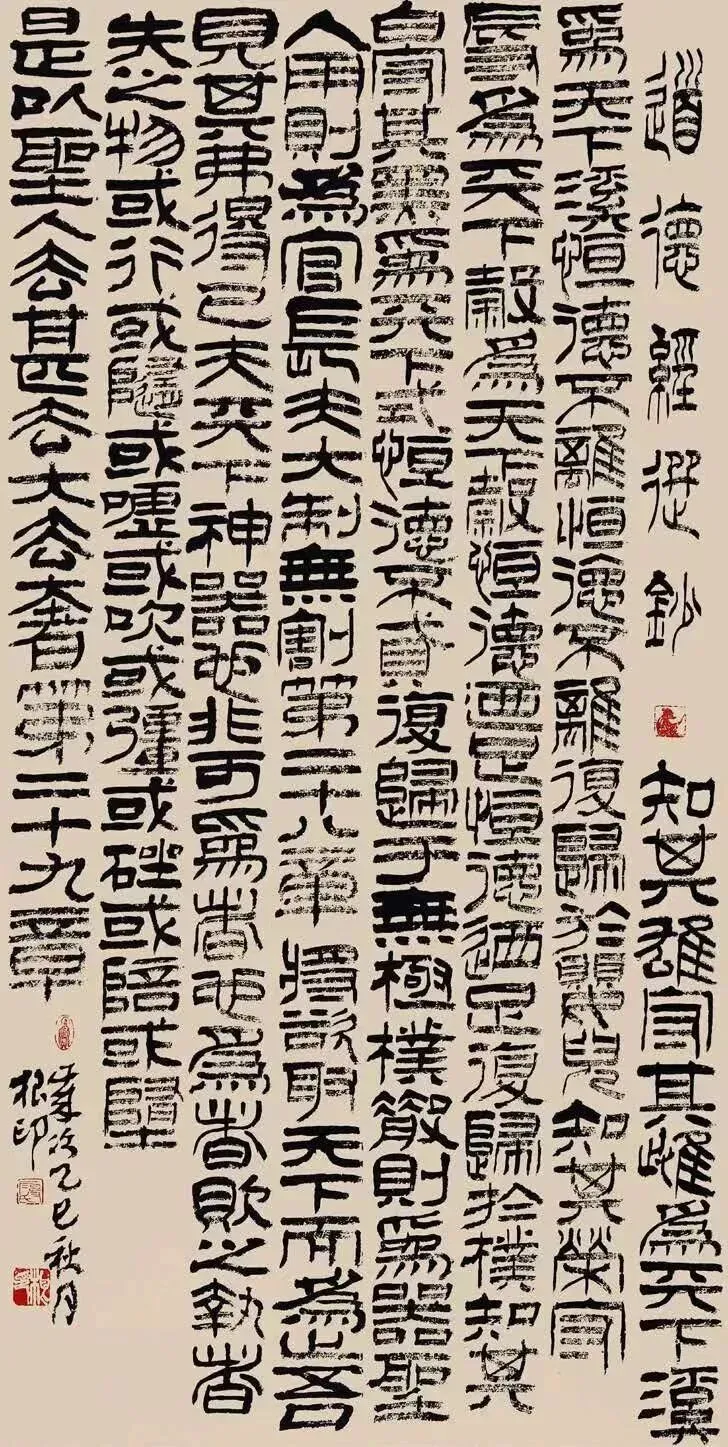 道德經選鈔 知其雄守其雌為天下溪
為天下溪恒德不離恒德不離復歸於嬰兒知其榮守
辱為天下穀為天下穀恒德迺足恒德迺足復歸於樸知其
白守其黑為天下式恒德不貣復歸于無極樸散則為器聖
人用則為官長夫大制無割第二十八章 將欲取天下而為之吾
見其弗得已夫天下神器也非可為者也為者敗之執者
失之物或行或隨或噓或吹或彊或或陪或墮
是以聖人去甚去大去奢第二十九章
歲次乙巳秋月
根印